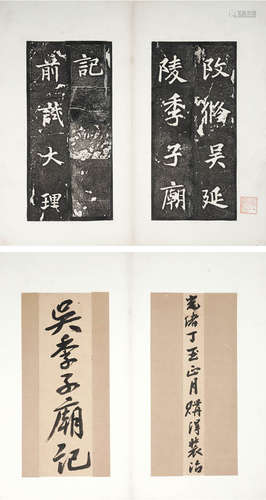 改脩吳延
陵季子廟
記
前試大理
光緒丁丑正月購得裝治
吳季子廟記